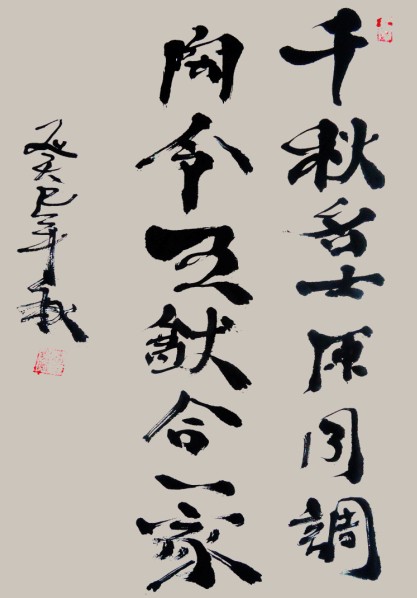 千秋名士原同調
陶令王猷合一家
癸巳年